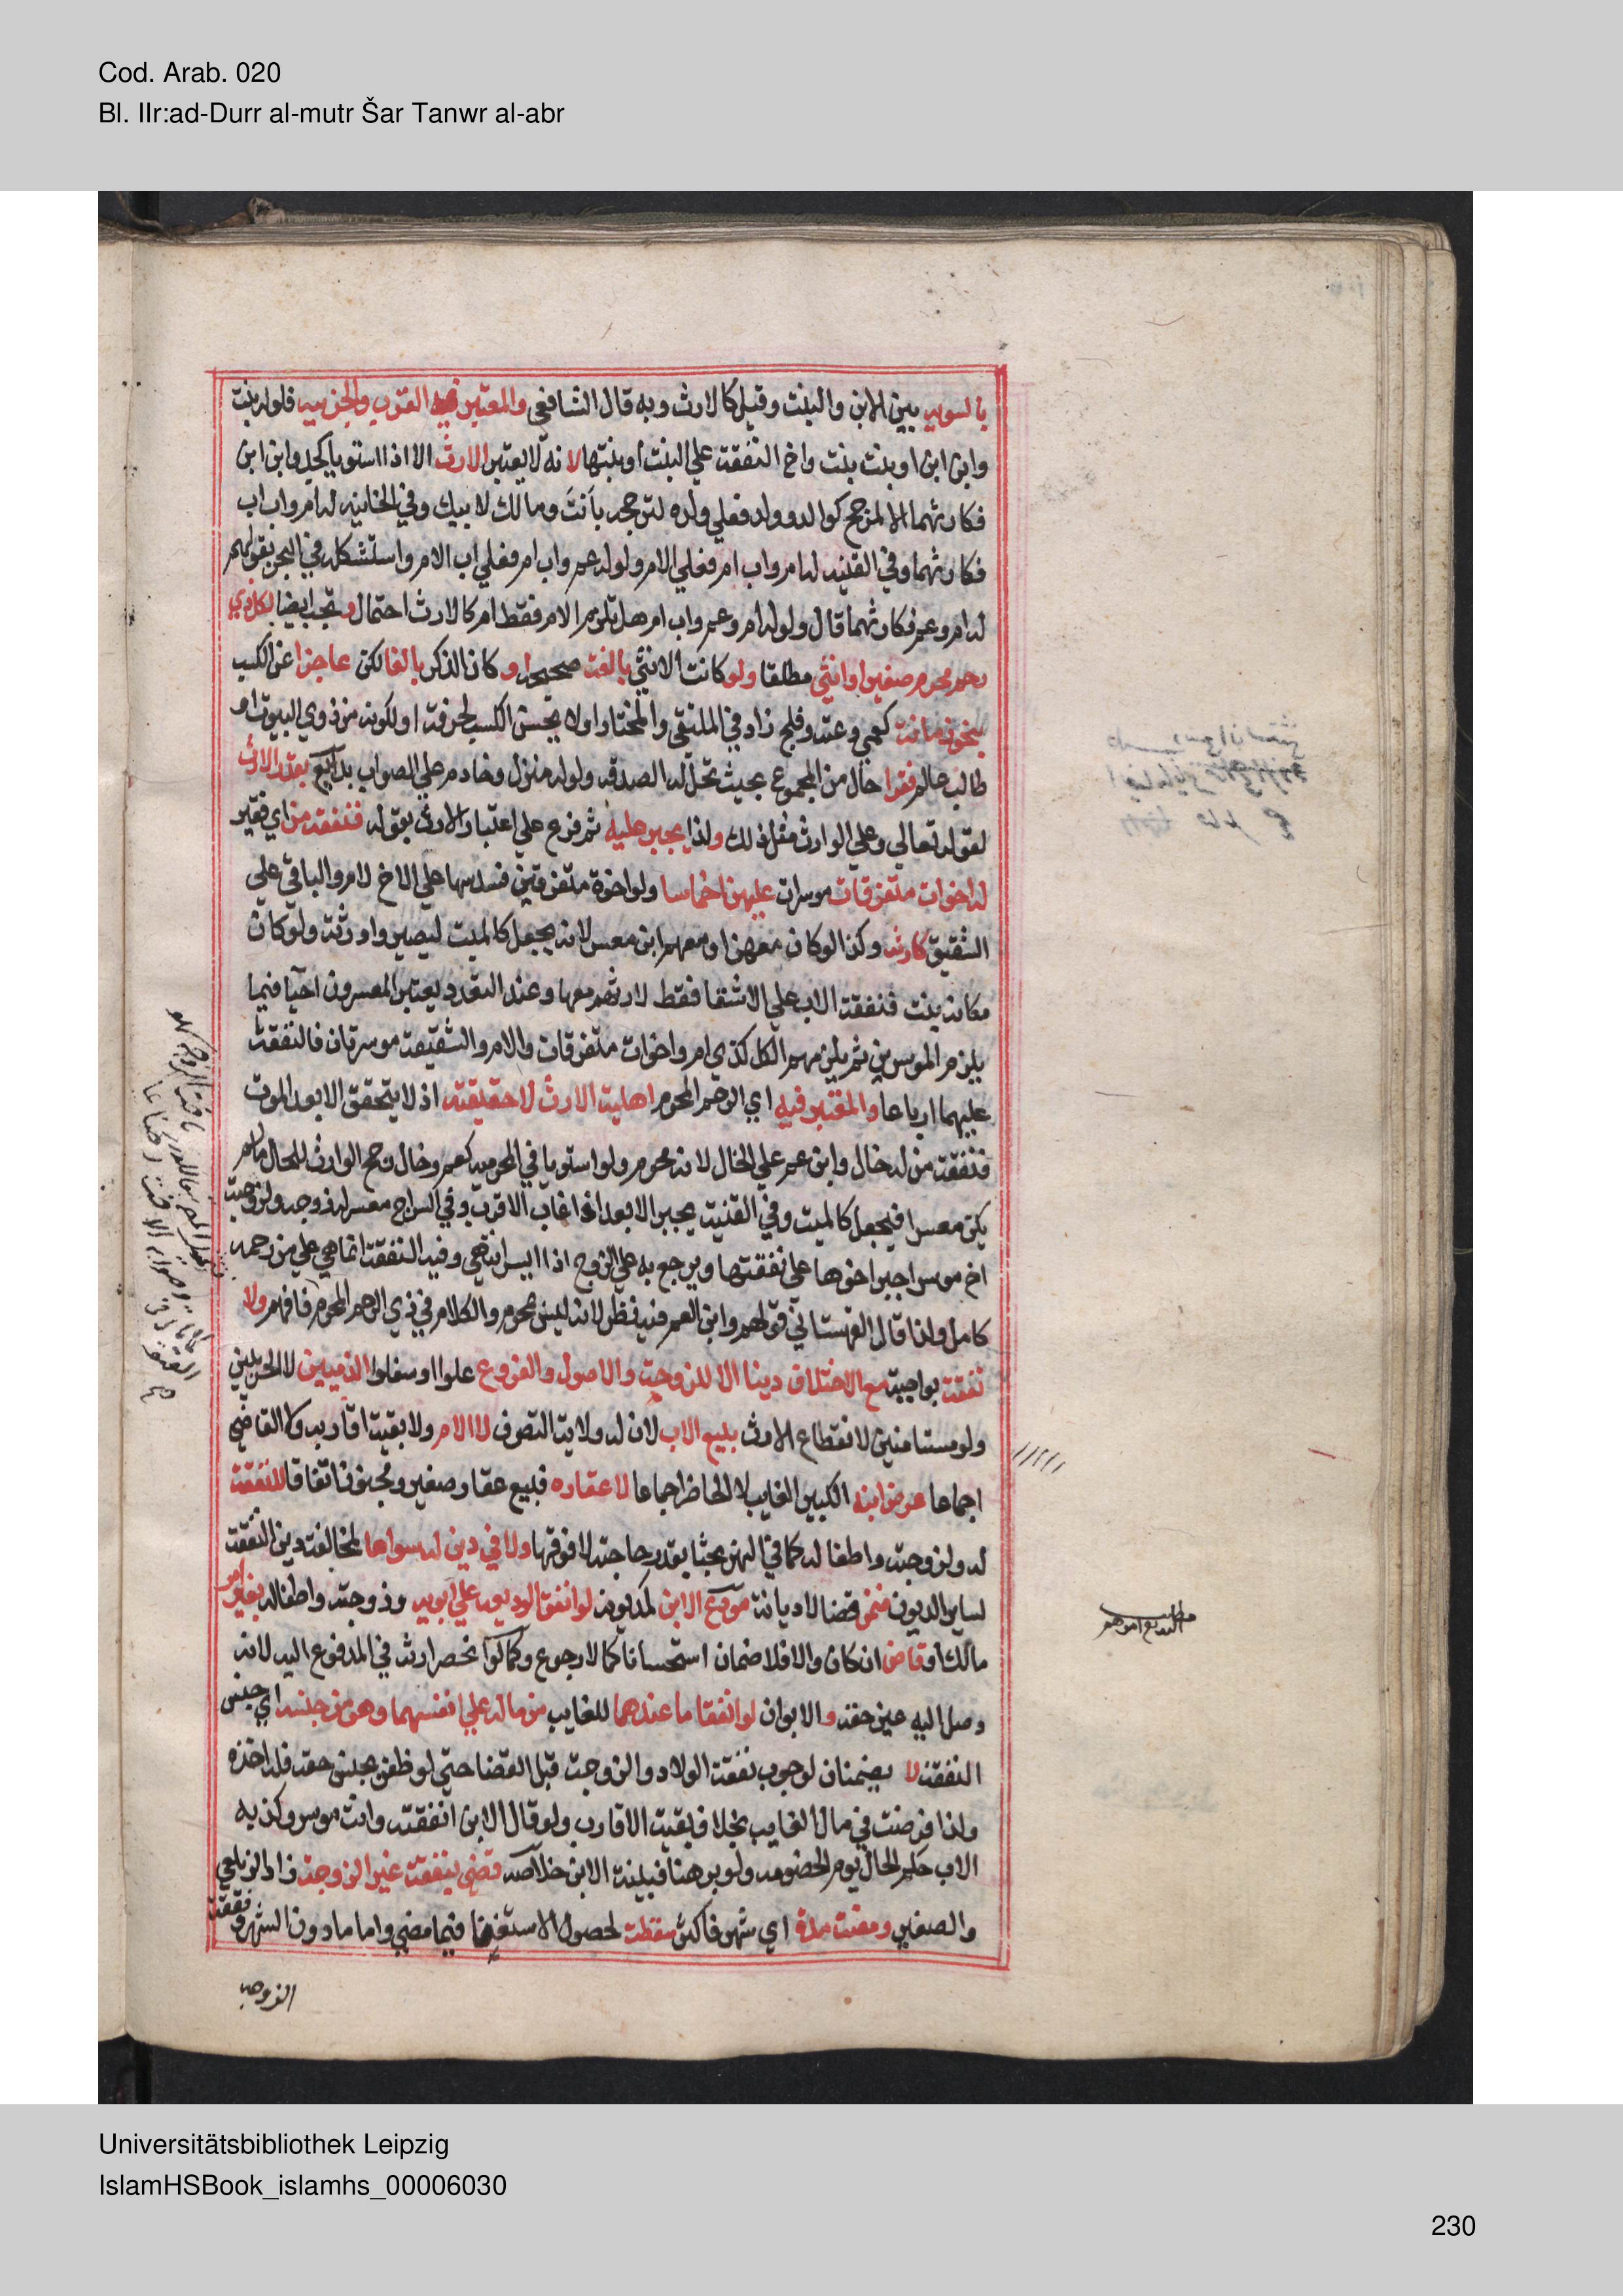 Cod. Arab. 020
Bl. IIr:ad-Durr al-mutr Šar Tanwr al-abr
بالسويه بين الابن والبنت وقيل كالارث وبه قال الشافعي والمعتبر فيه القرب والجزييه فلوله بنت
وابن ابن او بنت بنت واخ النفقة علي البنت او بنتها لانه لا يعتبر الارث الا اذا استويا كجد وابن ابن
فكارثهما الا لمرجح كوالد وولد فعلي ولده لترجحه بأنتَ ومالك لابيك وفي الخانيه له ام واب اب
فكارثهما وفي القنيه له ام واب ام فعلي الام ولو له عم واب ام فعلي اب الام واستشكله في البحر بقولهم
له ام وعم فكارثهما قال ولو له ام وعم واب ام هل تلزم الام فقط ام كالارث احتمال وتجب ايضا لكل ذي
رحم محرم صغير او انثي مطلقا ولو كانت الانثي بالغة صحيحة او كان الذكر بالغا لكن عاجزا عن الكسب
بنحو زمانة كعمي وعته وفلج زاد في الملتقي والمختار او لا يحسن الكسب لحرفة او لكونه من ذوي البيوت او
طالب علم فقرا حال من المجموع بحيث تحل له الصدقه ولو له منزل وخادم علي الصواب بدايع بقدر الارث
لقوله تعالي وعلي الوارث مثل ذلك ولذا يجبر عليه ثم فرع علي اعتبار الارث بقوله فنفقة من اي فقير
له اخوات متفرقات موسرات عليهن اخماسا ولو اخوة متفرقين فسدسها علي الاخ لام والباقي علي
الشقيق كارثه وكذا لو كان معهن او معهم ابن معسر لانه يجعل كالميت ليصيروا ورثة ولو كان
مكانه بنت فنفقة الاب علي الاشقا فقط لارثهم معها وعند التعدد يعتبر المعسرون احيآ فيما
يلزم الموسرين ثم يلزمهم الكل كذي ام واخوات متفرقات والام والشقيقة موسرتان فالنفقة
عليهما ارباعا والمعتبر فيه اي الرحم المحرم اهلية الارث لا حقيقته اذ لا يتحقق الا بعد الموت
فنفقة من له خال وابن عم علي الخال لانه محرم ولو استويا في المحرميه كعم وخال رجح الوارث للحال ما لم
يكن معسرا فيجعل كالميت وفي القنية يجبر الابعد اذا غاب الاقرب وفي السراج معسر له زوجه ولزوجته
اخ موسر اجبر اخوها علي نفقتها ويرجع به علي الزوج اذا ايسر انتهي وفيه النفقة انما هي علي من رحمه
كامل ولذا قال القهستاني قولهم وابن العم فيه نظر لانه ليس بمحرم والكلام في ذي الرحم المحرم فافهم ولا
نفقة بواجبة مع الاختلاف دينا الا للزوجة والاصول والفروع علوا او سفلوا الذميين لا الحربيين
ولو مستامنين لانقطاع الارث بليبيع الاب لان له ولاية التصرف لا الام ولا بقية اقاربه ولا القاضي
اجماعا عرض ابنه الكبير الغايب لا الحاضر اجماعا لا عقاره فيبيع عقار صغير ومجنون اتفاقا للنفقة
له ولزوجته واطفاله كما في النهر بحثا بقدر حاجته لا فوقها ولا في دين له سواها لمخالفة دين النفقة
لساير الديون ضمن قضا لا ديانة مودع الابن كمديونه لو انفق الوديعه علي ابويه وزوجته واطفاله بغير امر
مالك او قاض ان كان والا فلا ضمان استحسانا كما لا رجوع وكما لو انحصر ارثه في المدفوع اليه لانه
وصل اليه عين حقه والابوان لو انفقا ما عندهما للغايب من ماله علي انفسهما وهو من جنسه اي جنس
النفقة لا يضمنان لوجوب نفقة الولاد والزوجة قبل القضا حتي لو ظفر بجنس حقه فله اخذه
ولذا فرضت في مال الغايب بخلاف بقية الاقارب ولو قال الابن انفقته وانت موسر وكذبه
الاب حكم الحال يوم الخصومه ولو برهنا فبينة الابن خلاصه قضي بنفقة غير الزوجة زاد الزيلعي
والصغير ومضت مدة اي شهر فاكثر سقطت لحصول الاستغنا فيما مضي واما ما دون الشهر ونفقة
الزوجه
Universitätsbibliothek Leipzig
IslamHSBook_islamhs_00006030
230